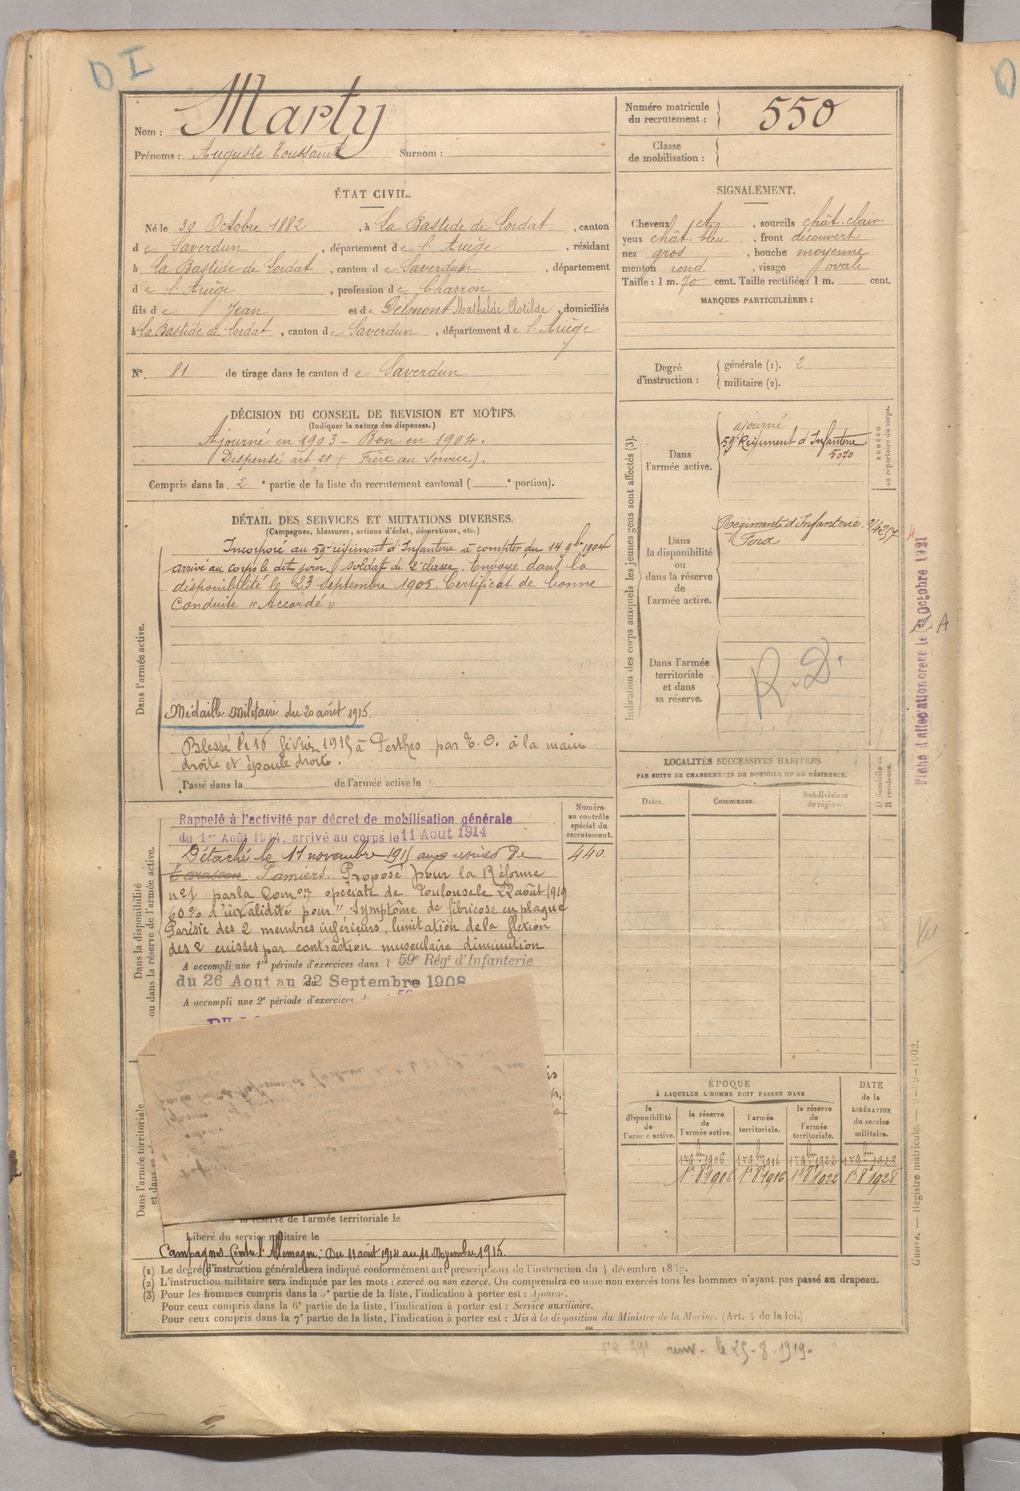 D I
Nom : Marty
Prénoms : Auguste Toussaint Surnom :
Numéro matricule du recrutement : 550
Classe de mobilisation :
ÉTAT CIVIL.
Né le 30 Octobre 1882, à La Bastide de Lordat, canton
de Saverdun, département de l'Ariège, résidant
à La Bastide de Lordat, canton de Saverdun, département
de l'Ariège, profession de Charron
fils de Jean et de Delmont Mathilde Clotilde, domiciliés
à La Bastide de Lordat, canton de Saverdun, département de l'Ariège
N° 81 de tirage dans le canton de Saverdun
SIGNALEMENT.
Cheveux, sourcils chât. clair
yeux chât. bleu, front découvert
nez gros, bouche moyenne
menton rond, visage ovale
Taille : 1 m. 70 cent. Taille rectifiée : 1 m. cent.
MARQUES PARTICULIÈRES :
Degré d'instruction : générale (1). 2
militaire (2).
DÉCISION DU CONSEIL DE REVISION ET MOTIFS.
(Indiquer la nature des dispenses.)
Ajourné en 1903 - Bon en 1904.
Dispensé art 21 (Frère au service).
Compris dans la 2e partie de la liste du recrutement cantonal ( e portion).
DÉTAIL DES SERVICES ET MUTATIONS DIVERSES.
(Campagnes, blessures, actions d'éclat, décorations, etc.)
Dans l'armée active.
Incorporé au 59e régiment d'Infanterie à compter du 14 9bre 1904
arrivé au corps le dit jour, soldat de 2e classe. Envoyé dans la
disponibilité le 23 septembre 1905. Certificat de bonne
conduite "Accordé"
Médaille militaire du 20 août 1915.
Blessé le 16 février 1915 à Perthes par E. O. à la main
droite et épaule droite.
Passé dans la de l'armée active le
Dans la disponibilité ou dans la réserve de l'armée active.
Rappelé à l'activité par décret de mobilisation générale
du 1er Août 1914, arrivé au corps le 11 Aout 1914
Détaché le 11 novembre 1915 aux usines de
Tarascon Pamiers. Proposé pour la Réforme
n°1 par la Comon spéciale de Toulouse le 22 août 1919
60% d'invalidité pour "Symptôme de fibricose en plaque
Parésie des 2 membres inférieurs, limitation de la flexion
des 2 cuisses par contraction musculaire diminution
A accompli une 1re période d'exercices dans l 59e Régt d'Infanterie
du 26 Aout au 22 Septembre 1908
A accompli une 2e période d'exercices
Numéro au contrôle spécial du recrutement.
440
Dans l'armée territoriale
la réserve de l'armée territoriale le
Libéré du service militaire le
Campagnes Contre l'Allemagne : Du 11 août 1914 au 11 Novembre 1915.
Indication des corps auxquels les jeunes gens sont affectés (3).
NUMÉRO au répertoire du corps.
Dans l'armée active.
ajourné
59e Régiment d'Infanterie
5070
Dans la disponibilité ou dans la réserve de l'armée active.
Régiment d'Infanterie
Foix
Dans l'armée territoriale et dans sa réserve.
R. D.
LOCALITÉS SUCCESSIVES HABITÉES
PAR SUITE DE CHANGEMENTS DE DOMICILE OU DE RÉSIDENCE.
Dates. Communes. Subdivisions de région. D domicile ou R résidence.
ÉPOQUE
À LAQUELLE L'HOMME DOIT PASSER DANS
DATE de la LIBÉRATION du service militaire.
la disponibilité de l'armée active. la réserve de l'armée active. l'armée territoriale. la réserve de l'armée territoriale.
1r 9br 1906 1r 9br 1916 1r 9br 1922 1r 9br 1928
1r 8r 1906 1r 8r 1916 1r 8r 1922 1r 8r 1928
Fiche d'affectation créée le Octobre 1921
Guerre. — Registre matricule.
(1) Le degré d'instruction générale sera indiqué conformément aux prescriptions de l'instruction du 4 décembre
(2) L'instruction militaire sera indiquée par les mots : exercé ou non exercé. On comprendra comme non exercés tous les hommes n'ayant pas passé au drapeau.
(3) Pour les hommes compris dans la 5e partie de la liste, l'indication à porter est : Ajourné.
Pour ceux compris dans la 6e partie de la liste, l'indication à porter est : Service auxiliaire.
Pour ceux compris dans la 7e partie de la liste, l'indication à porter est : Mis à la disposition du Ministre de la Marine. (Art. 4 de la loi.)
le 25-8-1919-